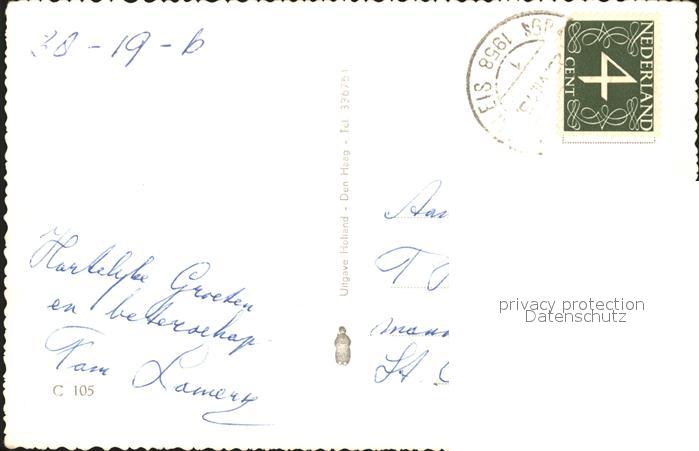 - 19 - 6
Hartelijke Groeten
en beterschap.
Fam
C 105
Uitgave Holland - Den Haag - Tel. 336751
1958
NEDERLAND
4
CENT
Aan
T
St.
privacy protection
Datenschutz